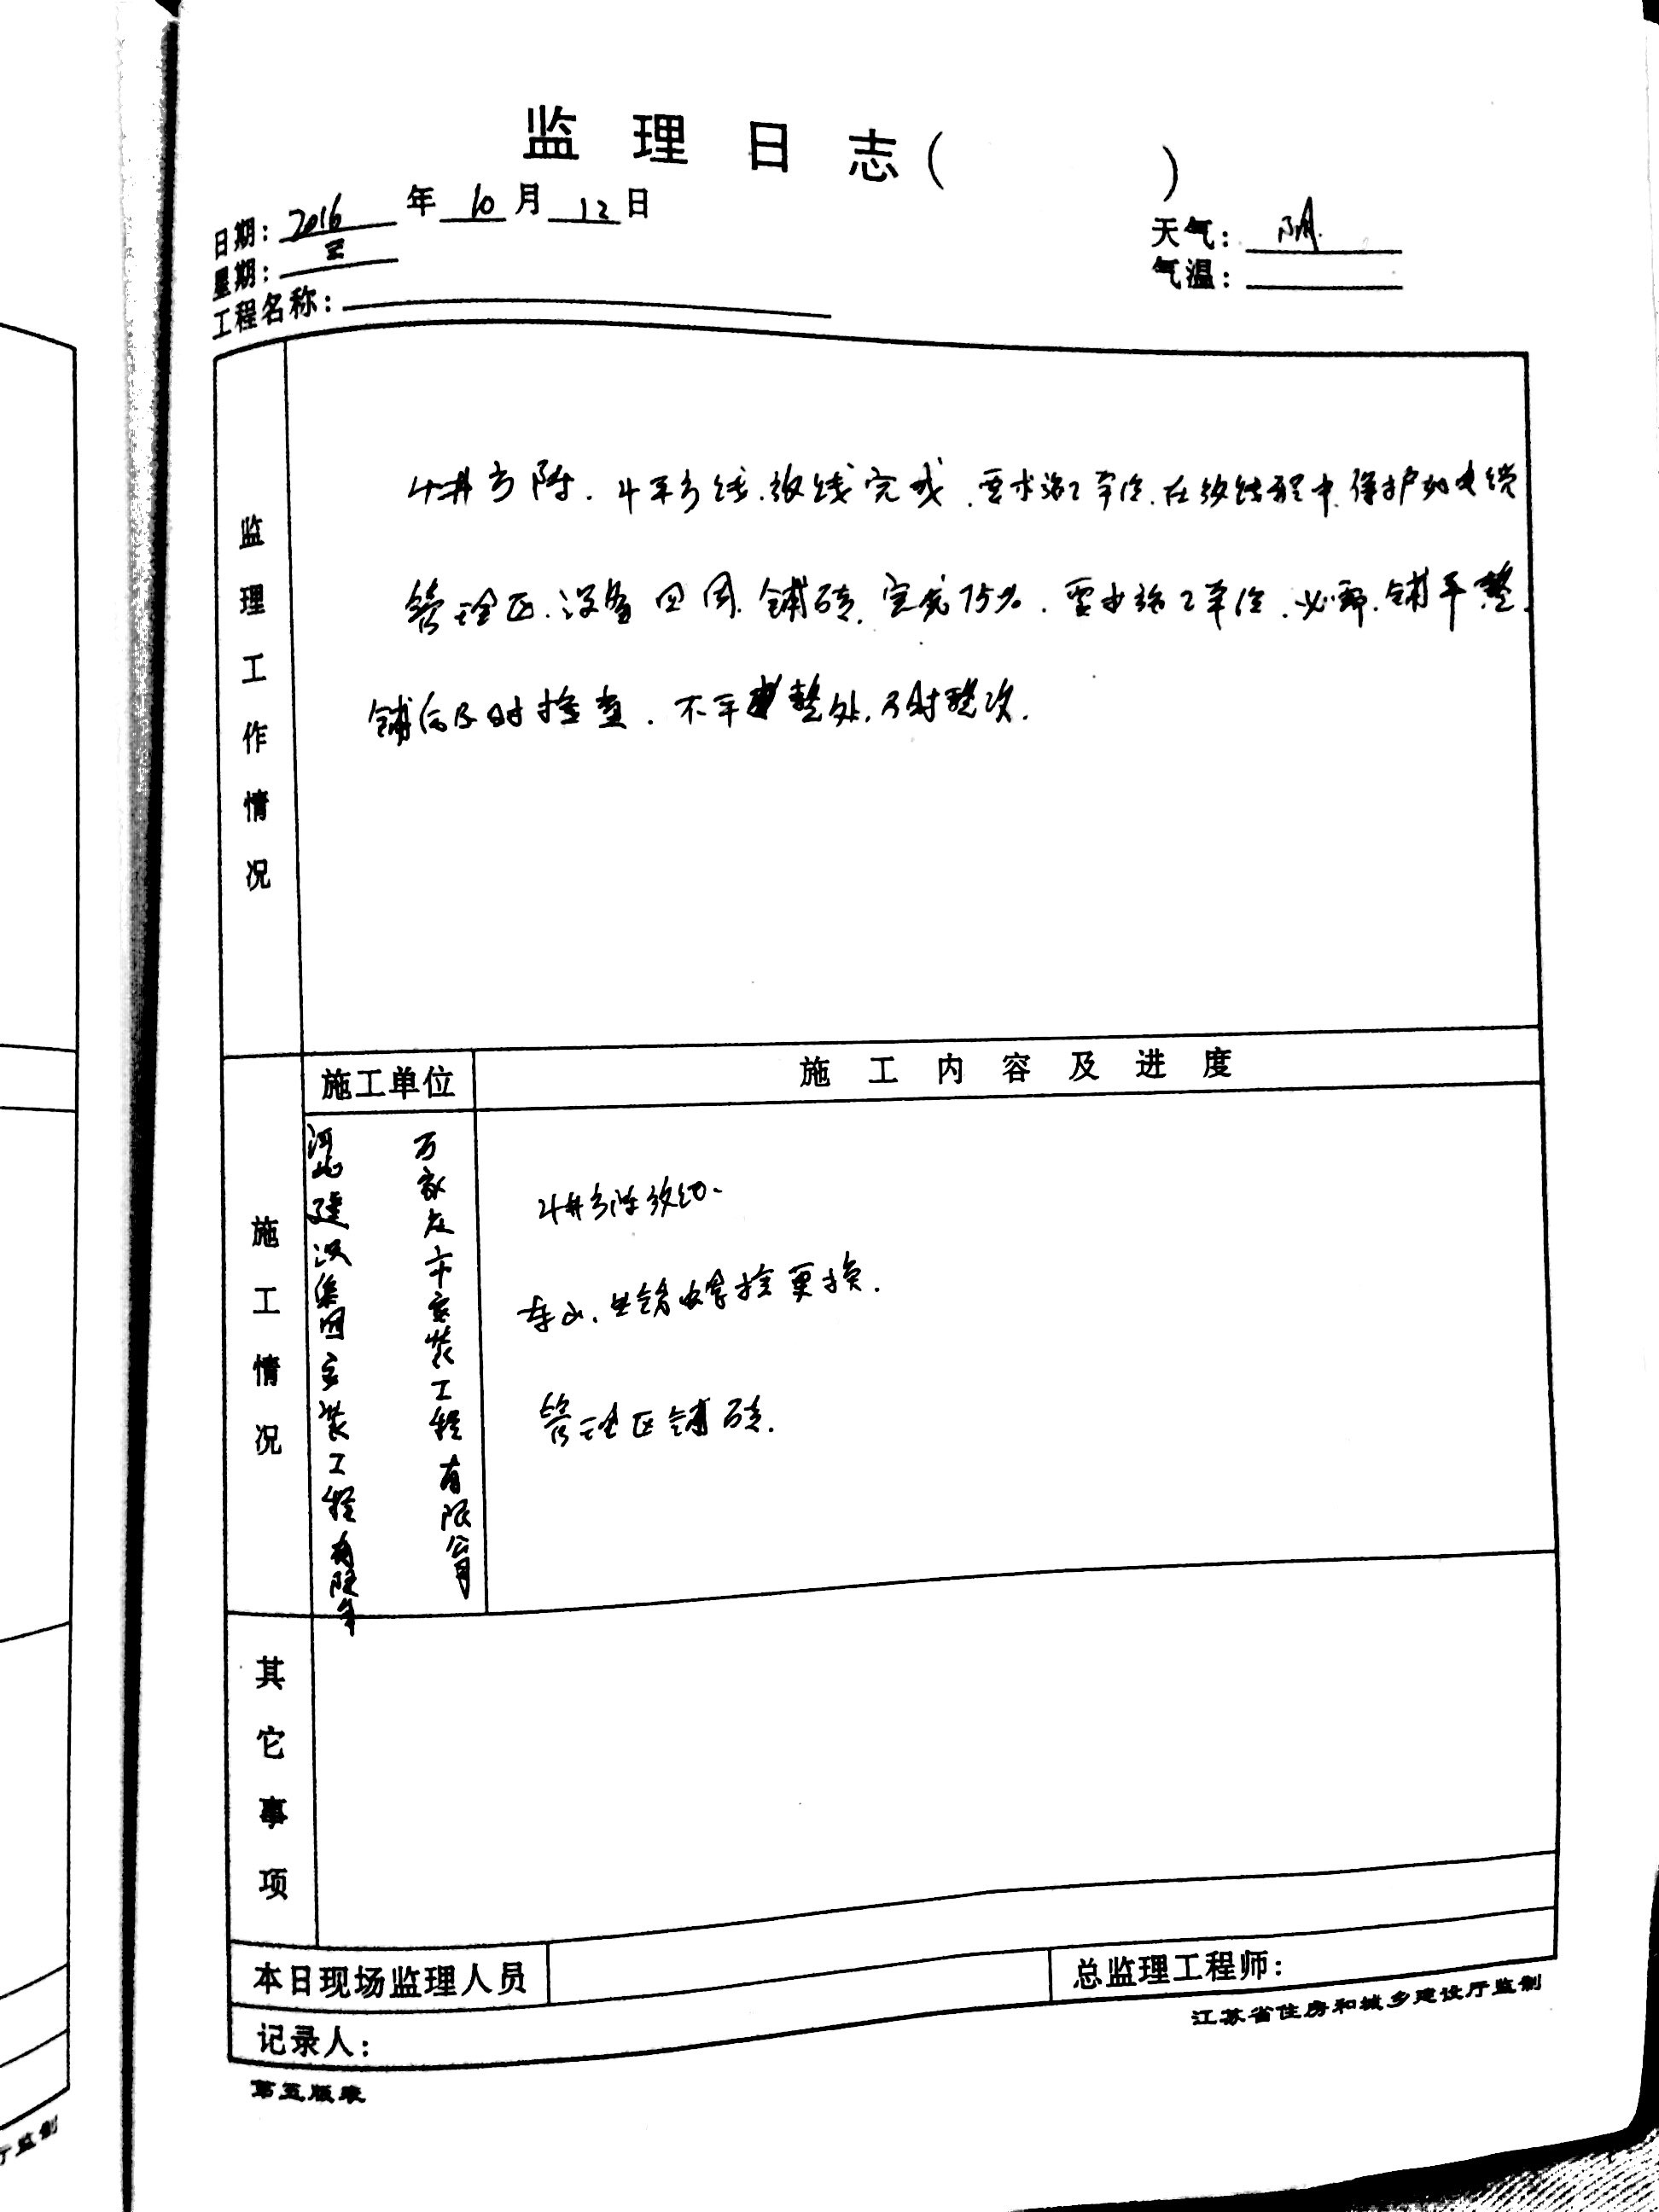 监理日志( )
日期: 2016 年 10 月 12 日
天气: 阴.
星期: 三
气温:
工程名称:
监理工作情况
4#方阵. 放线完成. 要求施工单位. 在放线程中. 保护好电缆
管理区. 设备四周. 铺砖. 完成75%. 要求施工单位. 必须. 铺平整.
铺后及时检查. 不平整处. 及时整改.
施工情况
施工单位
施工内容及进度
河北建设集团安装工程有限
万家在市安装工程有限公司
4#方阵放线.
螺栓更换.
管理区铺砖.
其它事项
本日现场监理人员
总监理工程师:
记录人:
江苏省住房和城乡建设厅监制
第五版表
厅监制